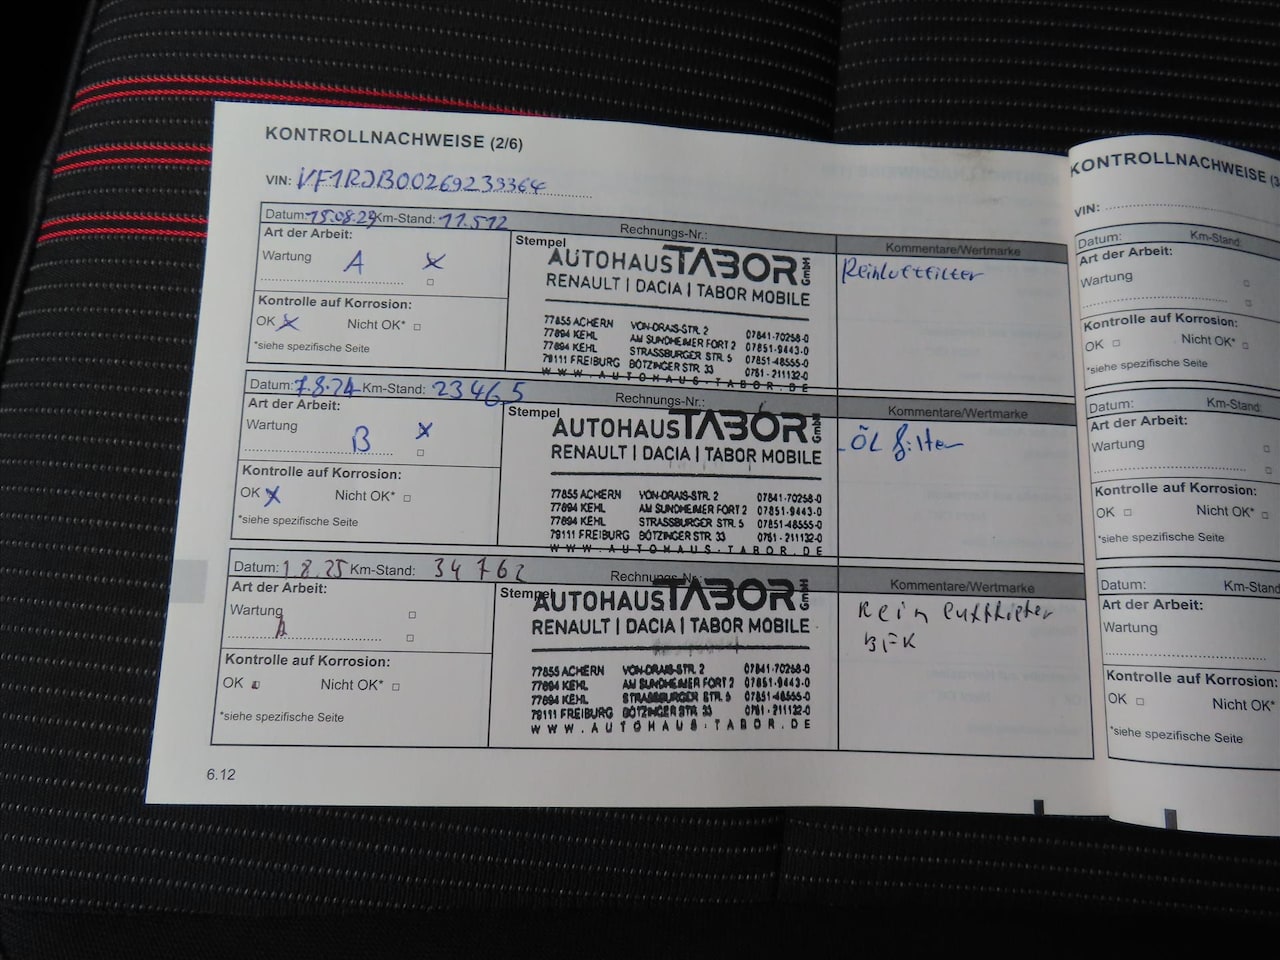 KONTROLLNACHWEISE (2/6)
VIN: VF1RJB00269239364
Datum: 15.08.23 Km-Stand: 11.512
Rechnungs-Nr.:
Kommentare/Wertmarke
Art der Arbeit:
Wartung A X
Kontrolle auf Korrosion:
OK X Nicht OK*
*siehe spezifische Seite
Stempel
AUTOHAUS TABOR GmbH
RENAULT | DACIA | TABOR MOBILE
77855 ACHERN VON-DRAIS-STR. 2 07841-70258-0
77694 KEHL AM SUNDHEIMER FORT 2 07851-9443-0
77694 KEHL STRASSBURGER STR. 5 07851-48555-0
79111 FREIBURG BÖTZINGER STR. 33 0761-211132-0
WWW.AUTOHAUS-TABOR.DE
Reinluftfilter
Datum: 7.8.24 Km-Stand: 23465
Rechnungs-Nr.:
Kommentare/Wertmarke
Art der Arbeit:
Wartung B X
Kontrolle auf Korrosion:
OK X Nicht OK*
*siehe spezifische Seite
Stempel
AUTOHAUS TABOR GmbH
RENAULT | DACIA | TABOR MOBILE
77855 ACHERN VON-DRAIS-STR. 2 07841-70258-0
77694 KEHL AM SUNDHEIMER FORT 2 07851-9443-0
77694 KEHL STRASSBURGER STR. 5 07851-48555-0
79111 FREIBURG BÖTZINGER STR. 33 0761-211132-0
WWW.AUTOHAUS-TABOR.DE
ÖL filter
Datum: 1.8.25 Km-Stand: 34762
Rechnungs-Nr.:
Kommentare/Wertmarke
Art der Arbeit:
Wartung
A
Kontrolle auf Korrosion:
OK Nicht OK*
*siehe spezifische Seite
Stempel
AUTOHAUS TABOR GmbH
RENAULT | DACIA | TABOR MOBILE
77855 ACHERN VON-DRAIS-STR. 2 07841-70258-0
77694 KEHL AM SUNDHEIMER FORT 2 07851-9443-0
77694 KEHL STRASSBURGER STR. 5 07851-48555-0
79111 FREIBURG BÖTZINGER STR. 33 0761-211132-0
WWW.AUTOHAUS-TABOR.DE
Reinluftfilter
BFK
6.12
KONTROLLNACHWEISE (3
VIN:
Datum: Km-Stand:
Art der Arbeit:
Wartung
Kontrolle auf Korrosion:
OK Nicht OK*
*siehe spezifische Seite
Datum: Km-Stand:
Art der Arbeit:
Wartung
Kontrolle auf Korrosion:
OK Nicht OK*
*siehe spezifische Seite
Datum: Km-Stand
Art der Arbeit:
Wartung
Kontrolle auf Korrosion:
OK Nicht OK*
*siehe spezifische Seite